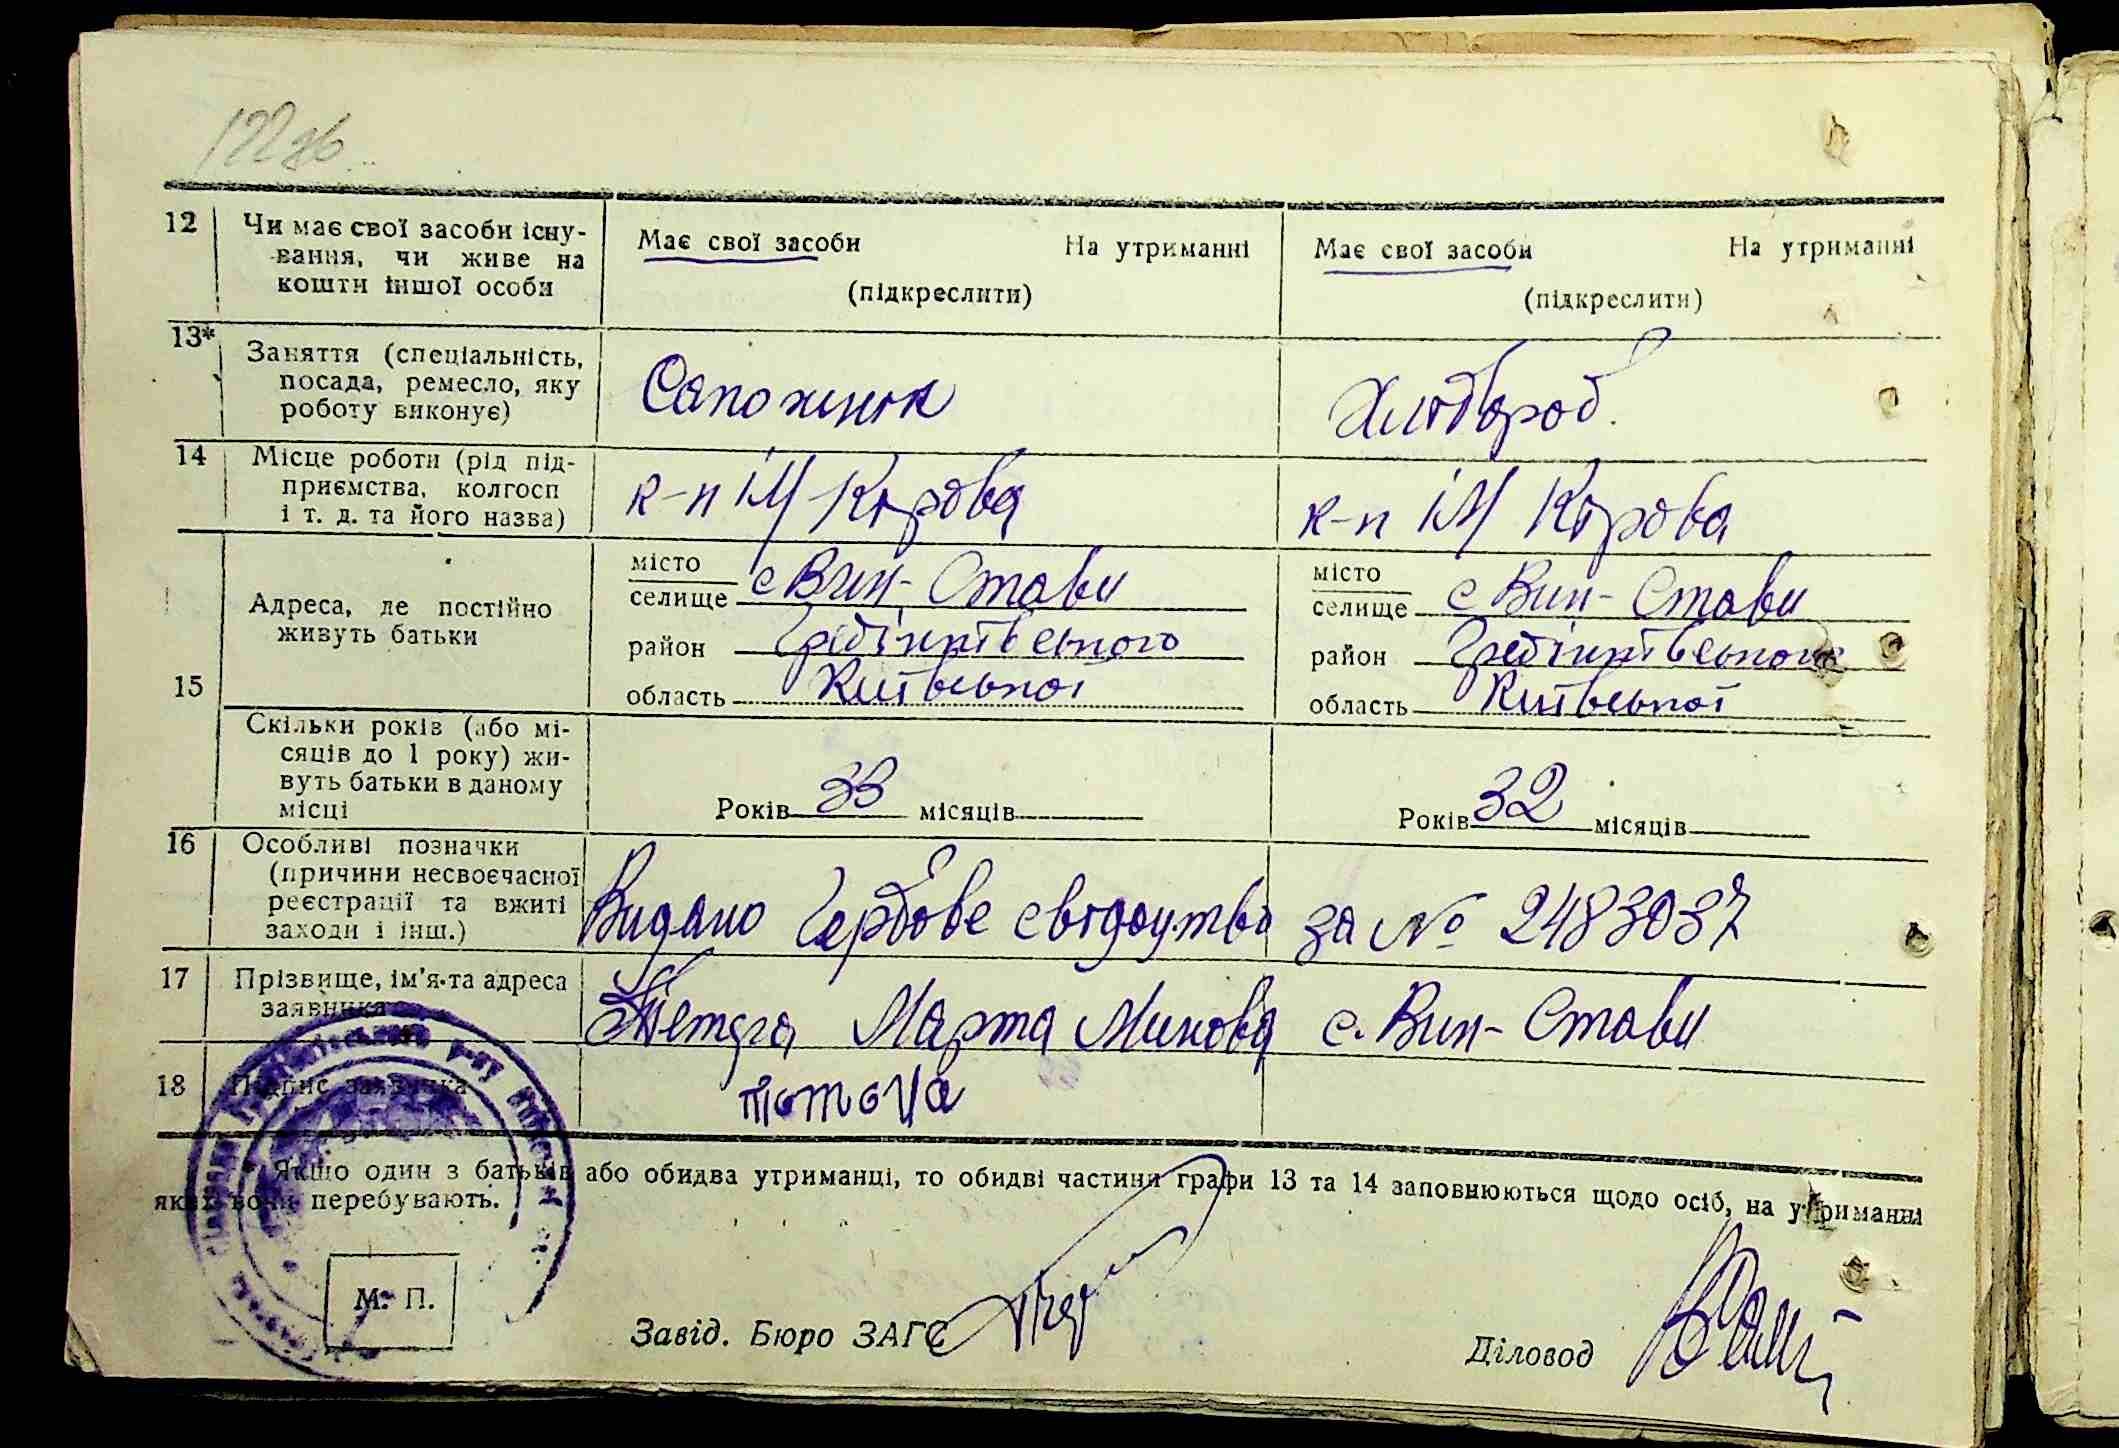 122 зв
12 Чи має свої засоби існу-
вання, чи живе на
кошти іншої особи
Має свої засоби На утриманні
(підкреслити)
Має свої засоби На утриманні
(підкреслити)
13* Заняття (спеціальність,
посада, ремесло, яку
роботу виконує)
Сапожник
Хлібороб.
14 Місце роботи (рід під-
приємства, колгосп
і т. д. та його назва)
к-п ім Кірова
к-п ім Кірова
15 Адреса, де постійно
живуть батьки
місто
селище с Вин-Стави
район Гребінківського
область Київської
місто
селище с Вин-Стави
район Гребінківського
область Київської
Скільки років (або мі-
сяців до 1 року) жи-
вуть батьки в даному
місці
Років 33 місяців
Років 32 місяців
16 Особливі позначки
(причини несвоєчасної
реєстрації та вжиті
заходи і інш.)
Видано Гербове свідоцтво за № 2483037
17 Прізвище, ім'я та адреса
заявника
Марта с. Вин-Стави
18 Підпис заявника
* Якщо один з батьків або обидва утриманці, то обидві частини графи 13 та 14 заповнюються щодо осіб, на утриманні
яких вони перебувають.
М. П.
Завід. Бюро ЗАГС
Діловод